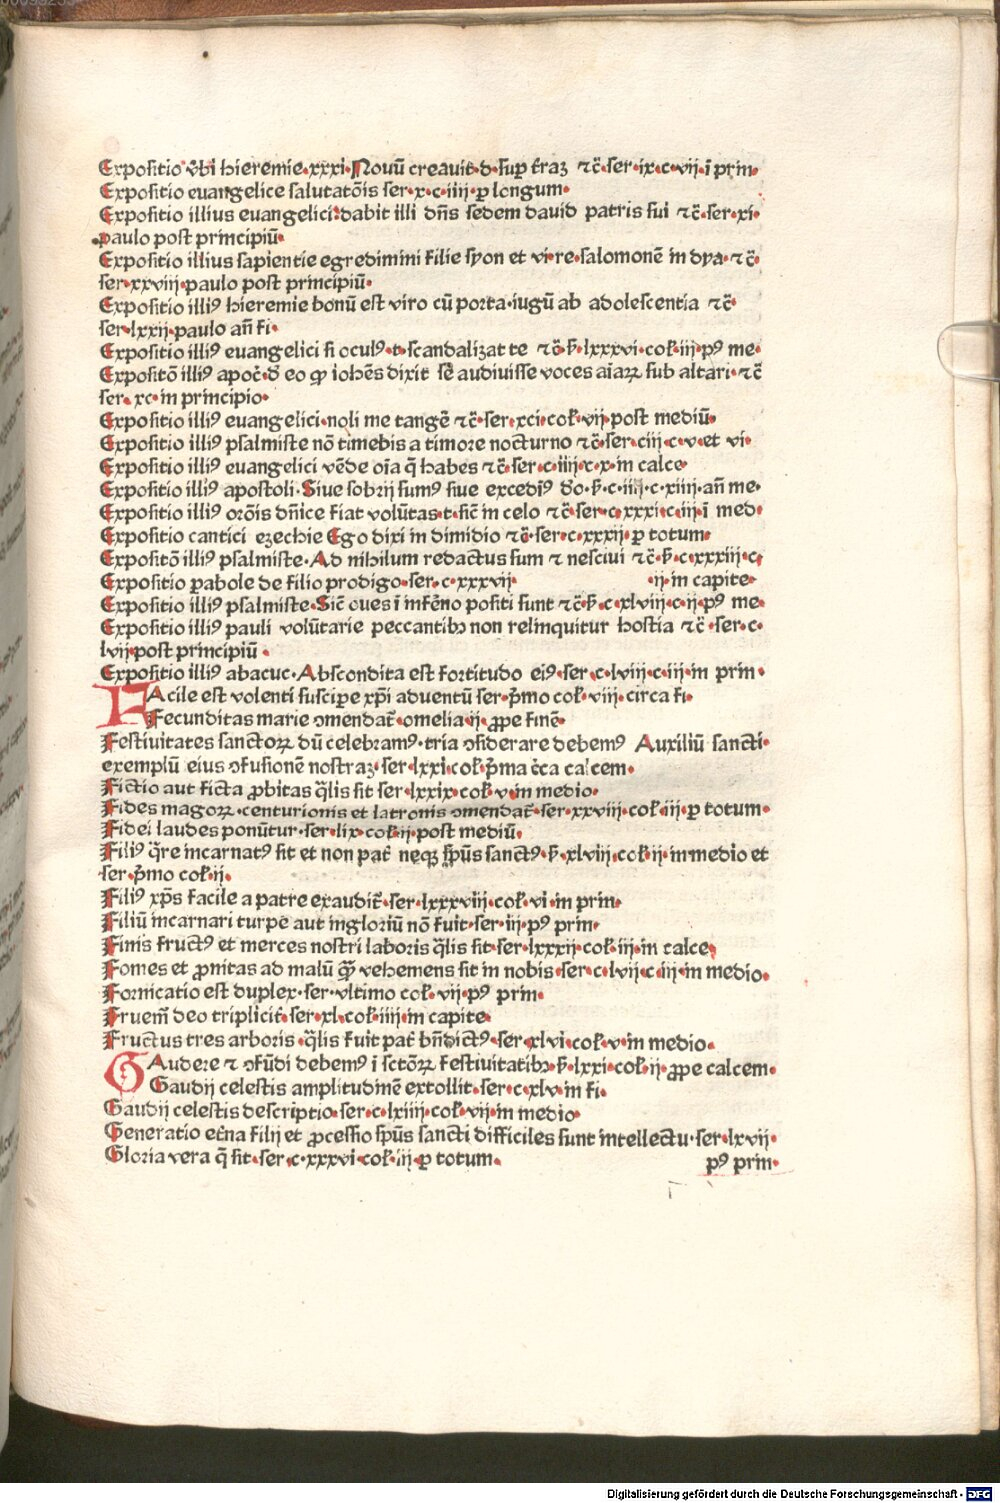 Expositio v̄bi hieremie.xxxi.Novū creavit.d.sup̄ t̄raꝫ ⁊c̄.ser.ix.c.vij.ī prin.
Expositio euangelice salutatōis ser.x.c.iiij.ꝑ longum.
Expositio illius euangelici:dabit illi dn̄s sedem david patris sui ⁊c̄.ser.xi.
paulo post principiū.
Expositio illius sapientie egredimini filie syon et vi re.salomonē in dya.⁊c̄.
ser.xxviij.paulo post principiū.
Expositio illiꝰ hieremie bonū est viro cū porta.iugū ab adolescentia ⁊c̄.
ser.lxxij.paulo an̄ fi.
Expositio illiꝰ euangelici si oculꝰ.t.scandalizat te ⁊c̄.s̄.lxxxvi.col.iij.pꝰ me.
Expositō illiꝰ apoc̄.d eo ꝙ ioh̄es dixit se audivisse voces aīaꝝ sub altari.⁊c̄
ser.xc.in principio.
Expositio illiꝰ euangelici.noli me tangē ⁊c̄.ser.xci.col.vij.post mediū.
Expositio illiꝰ psalmiste nō timebis a timore nocturno ⁊c̄.ser.ciij.c.v.et vi.
Expositio illiꝰ euangelici vēde oīa q̄ habes ⁊c̄.ser.c.iiij.c.x.in calce.
Expositio illiꝰ apostoli.Sive sobrij sumꝰ sive excedīꝰ d̄o.s̄.c.iiij.c.xiiij.an̄ me.
Expositio illiꝰ or̄ōis dn̄ice fiat volūtas.t.sic̄ in celo ⁊c̄.ser.c.xxxi.c.iij.ī med.
Expositio cantici ezechie Ego dixi in dimidio ⁊c̄.ser.c.xxxij.ꝑ totum.
Expositō illiꝰ psalmiste.Ad nihilum redactus sum ⁊ nescivi ⁊c̄.s̄.c.xxxiij.c.
Expositio ꝑabole de filio prodigo.ser.c.xxxvij. .ij.in capite.
Expositio illiꝰ psalmiste.Sic̄ oves ī inferno positi sunt ⁊c̄.s̄.c.xlviij.c.ij.pꝰ me.
Expositio illiꝰ pauli volūtarie peccantibꝫ non relinquitur hostia ⁊c̄.ser.c.
lvij.post principiū.
Expositio illiꝰ abacuc.Abscondita est fortitudo eiꝰ.ser.c.lviij.c.iij.in prin.
FAcile est volenti suscipe xp̄i adventū ser.p̄mo col.viij.circa fi.
Fecunditas marie ꝯmendat̄.omelia.ij.ꝓpe finē.
Festivitates sanctoꝝ dū celebramꝰ.tria ꝯsiderare debemꝰ Auxiliū sancti.
exemplū eius ꝯfusionē nostraꝫ.ser.lxxi.col.p̄ma c̄ca calcem.
Fictio aut ficta ꝓbitas q̄lis sit ser.lxxix.col.v.in medio.
Fides magoꝝ.centurionis et latronis ꝯmendat̄.ser.xxviij.col.iij.ꝑ totum.
Fidei laudes ponūtur.ser.lix.col.ij.post mediū.
Filiꝰ q̄re incarnatꝰ sit et non pat̄ neqꝫ sp̄ūs sanctꝰ.s̄.xlviij.col.ij.in medio et
ser.p̄mo col.ij.
Filiꝰ xp̄s facile a patre exaudit̄.ser.lxxxviij.col.vi.in prin.
Filiū incarnari turpe aut ingloriū nō fuit.ser.iij.pꝰ prin.
Finis fructꝰ et merces nostri laboris q̄lis sit.ser.lxxxij.col.iij.in calce.
Fomes et ꝓnitas ad malū ꝙ̄ vehemens sit in nobis.ser.c.lvij.c.iij.in medio.
Fornicatio est duplex.ser.vltimo col.vij.pꝰ prin.
Fruem̄ deo triplicit̄.ser.xl.col.iiij.in capite.
Fructus tres arboris.q̄lis fuit pat̄ bn̄dictꝰ.ser.xlvi.col.v.in medio.
GAudere ⁊ ꝯfūdi debemꝰ ī sctōꝝ festivitatibꝫ.s̄.lxxi.col.ij.ꝓpe calcem.
Gaudij celestis amplitudinē extollit.ser.c.xlv.in fi.
Gaudij celestis descriptio.ser.c.lxiiij.col.vij.in medio.
Generatio et̄na filij et ꝓcessio sp̄ūs sancti difficiles sunt intellectu.ser.lxvij.
Gloria vera q̄ sit.ser.c.xxxvi.col.iij.ꝑ totum. pꝰ prin.
Digitalisierung gefördert durch die Deutsche Forschungsgemeinschaft - DFG